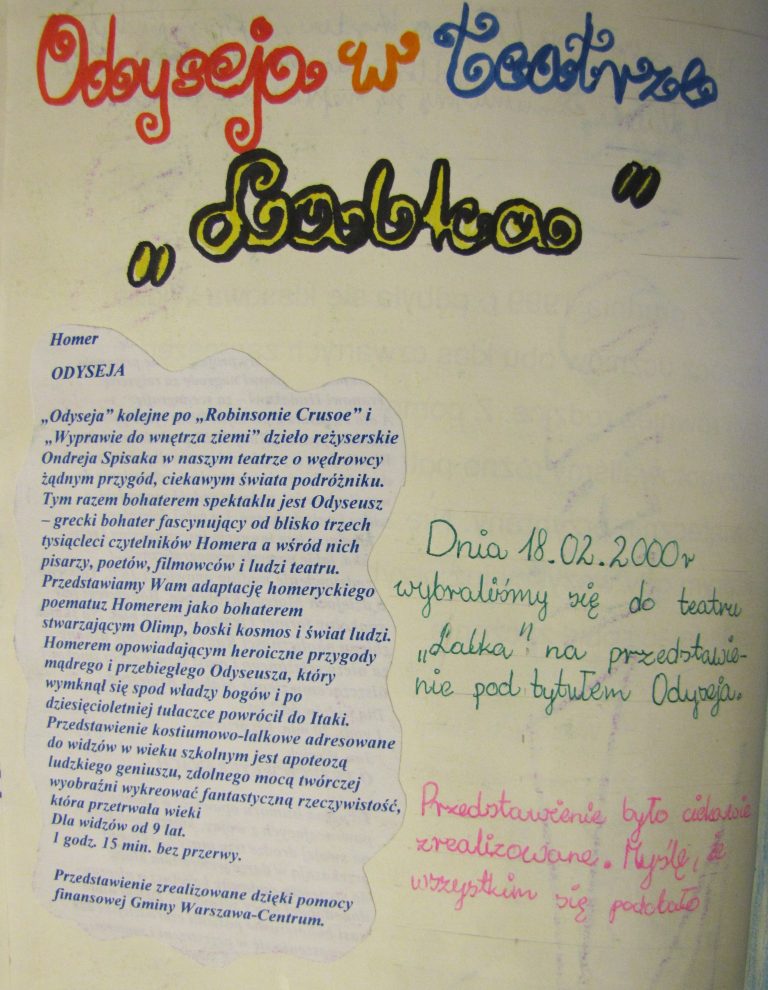 Odyseja w teatrze
„Lalka”
Homer
ODYSEJA
„Odyseja” kolejne po „Robinsonie Crusoe” i
„Wyprawie do wnętrza ziemi” dzieło reżyserskie
Ondreja Spisaka w naszym teatrze o wędrowcy
żądnym przygód, ciekawym świata podróżniku.
Tym razem bohaterem spektaklu jest Odyseusz
– grecki bohater fascynujący od blisko trzech
tysiącleci czytelników Homera a wśród nich
pisarzy, poetów, filmowców i ludzi teatru.
Przedstawiamy Wam adaptację homeryckiego
poematuz Homerem jako bohaterem
stwarzającym Olimp, boski kosmos i świat ludzi.
Homerem opowiadającym heroiczne przygody
mądrego i przebiegłego Odyseusza, który
wymknął się spod władzy bogów i po
dziesięcioletniej tułaczce powrócił do Itaki.
Przedstawienie kostiumowo-lalkowe adresowane
do widzów w wieku szkolnym jest apoteozą
ludzkiego geniuszu, zdolnego mocą twórczej
wyobraźni wykreować fantastyczną rzeczywistość,
która przetrwała wieki
Dla widzów od 9 lat.
1 godz. 15 min. bez przerwy.
Przedstawienie zrealizowane dzięki pomocy
finansowej Gminy Warszawa-Centrum.
Dnia 18.02.2000r
wybraliśmy się do teatru
„Lalka” na przedstawie-
nie pod tytułem Odyseja.
Przedstawienie było ciekawie
zrealizowane. Myślę, że
wszystkim się podobało